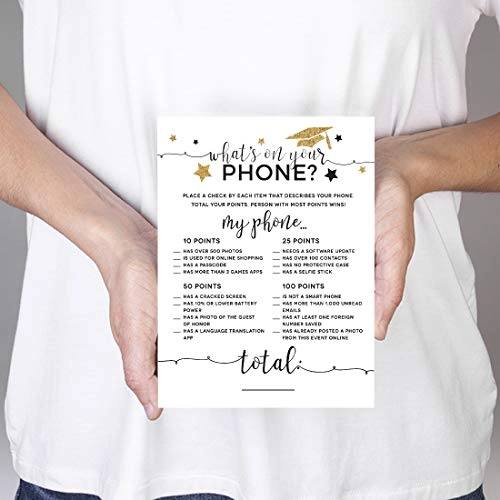 what's on your
PHONE?
PLACE A CHECK BY EACH ITEM THAT DESCRIBES YOUR PHONE
TOTAL YOUR POINTS. PERSON WITH MOST POINTS WINS!
my phone...
10 POINTS
__ HAS OVER 500 PHOTOS
__ IS USED FOR ONLINE SHOPPING
__ HAS A PASSCODE
__ HAS MORE THAN 3 GAMES APPS
25 POINTS
__ NEEDS A SOFTWARE UPDATE
__ HAS OVER 100 CONTACTS
__ HAS NO PROTECTIVE CASE
__ HAS A SELFIE STICK
50 POINTS
__ HAS A CRACKED SCREEN
__ HAS 10% OR LOWER BATTERY
POWER
__ HAS A PHOTO OF THE GUEST
OF HONOR
__ HAS A LANGUAGE TRANSLATION
APP
100 POINTS
__ IS NOT A SMART PHONE
__ HAS MORE THAN 1,000 UNREAD
EMAILS
__ HAS AT LEAST ONE FOREIGN
NUMBER SAVED
__ HAS ALREADY POSTED A PHOTO
FROM THIS EVENT ONLINE
total: